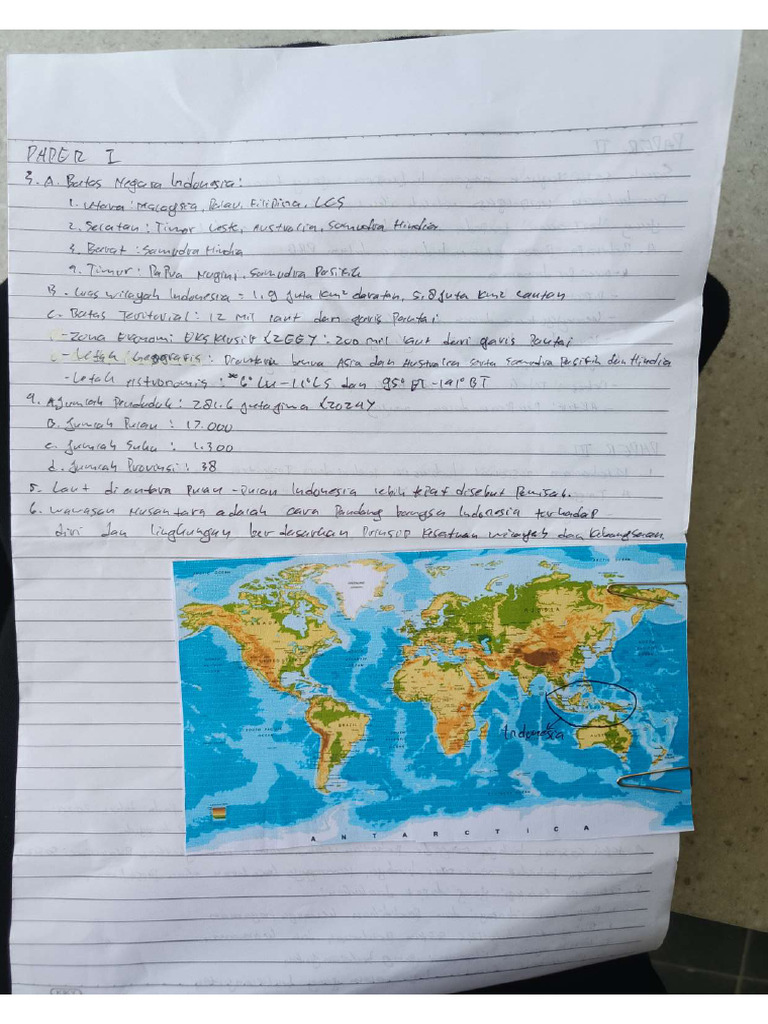 PAPER I
3. A. Batas Negara Indonesia:
1. Utara: Malaysia, Palau, Filipina, LCS
2. Selatan: Timor Leste, Australia, Samudra Hindia
3. Barat: Samudra Hindia
4. Timur: Papua Nugini, Samudra Pasifik
B. Luas wilayah Indonesia = 1.9 Juta km² daratan, 5.8 Juta km² lautan
C. Batas Teritorial: 12 Mil laut dari garis Pantai
- Zona Ekonomi Eksklusif (ZEE): 200 mil laut dari garis Pantai
- Letak Geografis: Diantara benua Asia dan Australia serta Samudra Pasifik dan Hindia
- Letak Astronomis: 6° LU - 11° LS dan 95° BT - 141° BT
4. A. Jumlah Penduduk: 281.6 juta jiwa (2024)
B. Jumlah Pulau: 17.000
C. Jumlah Suku: 1.300
d. Jumlah Provinsi: 38
5. Laut diantara Pulau-Pulau Indonesia lebih tepat disebut Pemisah.
6. Wawasan Nusantara adalah cara Pandang bangsa Indonesia terhadap
diri dan lingkungan berdasarkan Prinsip kesatuan wilayah dan kebangsaan
BRAZIL
Indonesia
ANTARCTICA